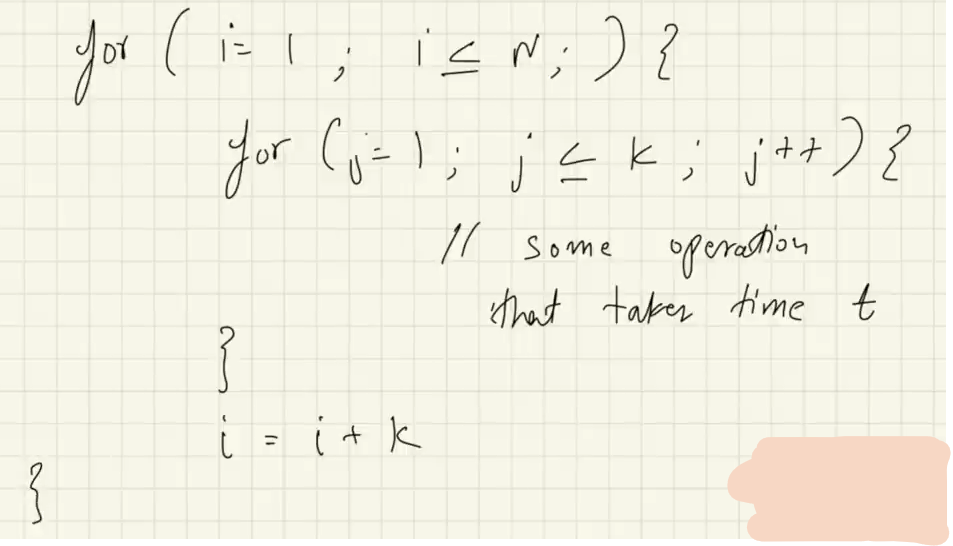 for ( i= 1 ; i ≤ N; ) {
for (j= 1 ; j ≤ k ; j++ ) {
// some operation
that takes time t
}
i = i + k
}